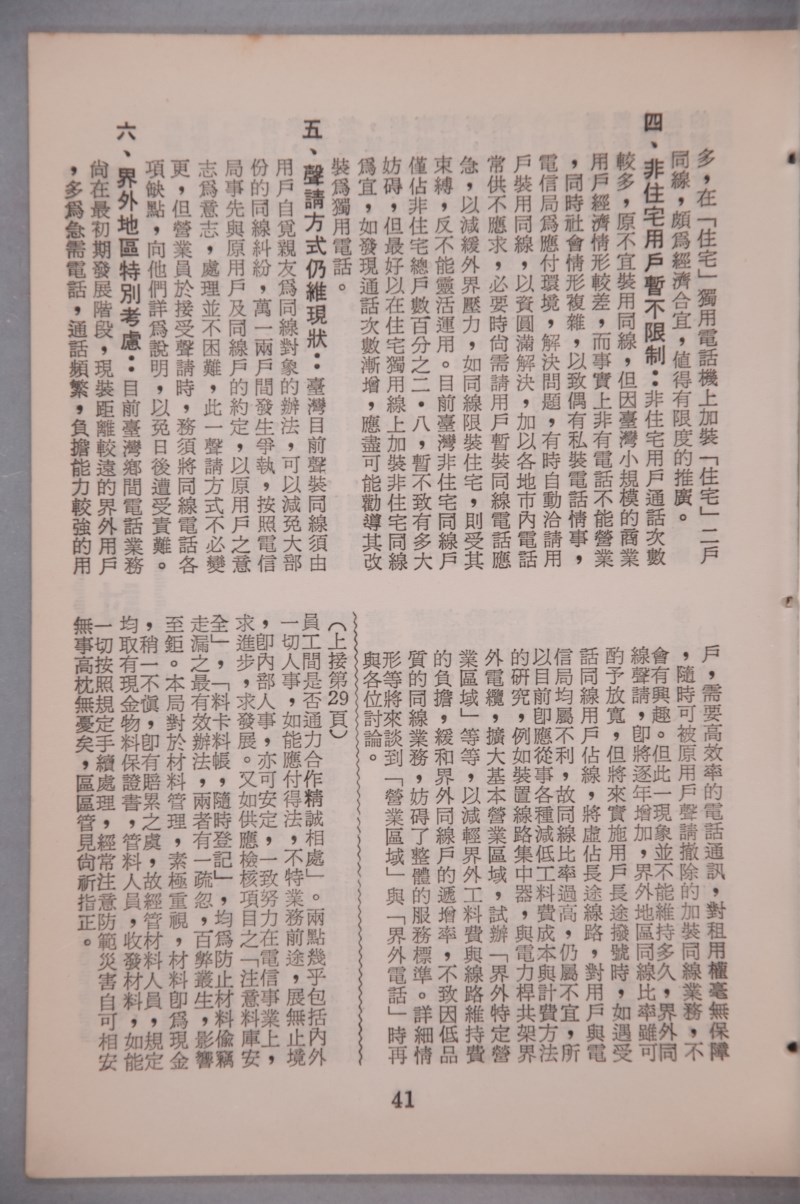 多，在「住宅」獨用電話機上加裝「住宅」二戶
同線，頗爲經濟合宜，値得有限度的推廣。
四、非住宅用戶暫不限制：非住宅用戶通話次數
較多，原不宜裝用同線，但因臺灣小規模的商業
用戶經濟情形較差，而事實上非有電話不能營業
，同時社會情形複雜，以致偶有私裝電話情事，
電信局爲應付環境，解決問題，有時自動洽請用
戶裝用同線，以資圓滿解決，加以各地市內電話
常供不應求，必要時尙需請用戶暫裝同線電話應
急，以減緩外界壓力，如同線限裝住宅，則受其
束縛，反不能靈活運用。目前臺灣非住宅同線戶
僅佔非住宅總戶數百分之二．八，暫不致有多大
妨碍，但最好以在住宅獨用線上加裝非住宅同線
爲宜，如發現通話次數漸增，應盡可能勸導其改
裝爲獨用電話。
五、聲請方式仍維現狀：臺灣目前聲裝同線須由
用戶自覓親友爲同線對象的辦法，可以減免大部
份的同線糾紛，萬一兩戶間發生爭執，按照電信
局事先與原用戶及同線戶的約定，以原用戶之意
志爲意志，處理並不困難，此一聲請方式不必變
更，但營業員於接受聲請時，務須將同線電話各
項缺點，向他們詳爲說明，以免日後遭受責難。
六、界外地區特別考慮：目前臺灣鄉間電話業務
尙在最初期發展階段，現裝距離較遠的界外用戶
，多爲急需電話，通話頻繁，負擔能力較強的用
戶，需要高效率的電話通訊，對租用權毫無保障
，隨時可被原用戶聲請撤除的加裝同線業務，不
會有興趣。但此一現象並不能維持多久，界外同
線聲請，卽將逐年增加，界外地區同線比率雖可
酌予放寬，但將來實施用戶長途撥號時，如遇受
話同線用戶佔線，將虛佔長途線路，對用戶與電
信局均屬不利，故同線比率過高，仍屬不宜，所
以目前卽應從事各種減低工料費成本與計費方法
的硏究，例如裝置線路集中器，與電力桿共架界
外電纜，擴大基本營業區域，試辦「界外特定營
業區域」等等，以減輕界外工料費與線路維持費
的負擔，緩和界外同線戶的遞增率，不致因低品
質的同線業務，妨碍了整體的服務標準。詳細情
形等將來談到「營業區域」與「界外電話」時再
與各位討論。
（上接第29頁）
員工間是否通力合作精誠相處」。兩點幾乎包括內外
一切人事，如能應付得法，不特業務前途，展無止境
，卽內部人事，亦可安定，一致努力在電信事業上，
求進步，求發展。又如供應檢核項目之「注意料庫安
全」，「料卡料帳，隨時登記」，均爲防止材料偷竊
走漏之最有效辦法，兩者有一疏忽，百弊叢生，影響
至鉅。本局對於材料管理，素極重視，材料卽爲現金
，稍一不愼，卽有賠累之虞，故經管材料人員，規定
均取有現金物料保證書，管料人員，收發材料，如能
一切按照規定手續處理，經常注意防範災害自可相安
無事高枕無憂矣，區區管見尙祈指正。
41